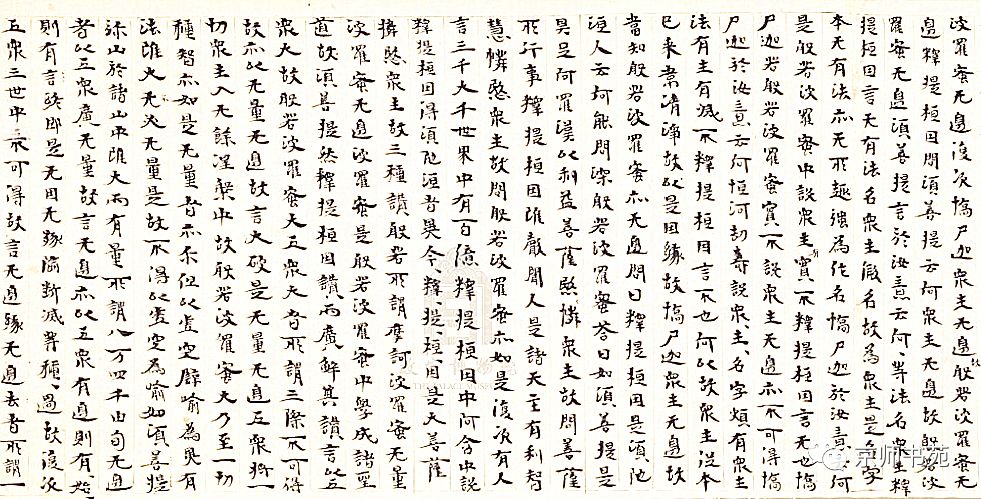 波羅蜜无邊復次憍尸迦衆生无邊故般若波羅蜜无
邊釋提桓因問須菩提云何衆生无邊故般若波
羅蜜无邊須菩提言於汝意云何、等法名衆生釋
提桓因言无有法名衆生假名故為衆生是名字
本无有法亦无所趣強為作名憍尸迦於汝意云何
是般若波羅蜜中說衆生有實不釋提桓因言无也憍
尸迦若般若波羅蜜實不說衆生无邊亦不可得憍
尸迦於汝意云何恒河劫壽說衆生、名字頗有衆生
法有生有滅不釋提桓因言不也何以故衆生從本
已来常清淨故以是因緣故憍尸迦衆生无邊故
當知般若波羅蜜亦无邊問曰釋提桓因是須陀
洹人云何能問深般若波羅蜜答曰如須菩提是
是阿羅漢以利益菩薩愍憐衆生故問菩薩
所行事釋提桓因雖聲聞人是諸天主有利智
慧憐愍衆生故問般若波羅蜜亦如是復次有人
言三千大千世界中有百億釋提桓因中阿含中說
釋提桓因得須陀洹者異今釋提桓因是大菩薩
憐愍衆生故三種讚般若所謂摩訶波羅蜜无量
波羅蜜无邊波羅蜜是般若波羅蜜中學成諸聖
道故須菩提然釋提桓因讚而廣解其讚言以五
衆大故般若波羅蜜大五衆大者所謂三際不可得
故亦以无量无邊故言大破是无量无邊五衆將一
切衆生入无餘涅槃中故般若波羅蜜大乃至一切
種智亦如是无量者亦尔但以虛空譬喻為異有
法雖大无必无量是故不得以虛空為喻如須菩提
弥山於諸山中雖大而有量所謂八万四千由旬无邊
者以五衆廣无量故言无邊亦以五衆有邊則有始
則有言終即是无因无緣墮断滅等種、過故復次
五衆三世中不可得故言无邊緣无邊去者所謂一
京师书苑